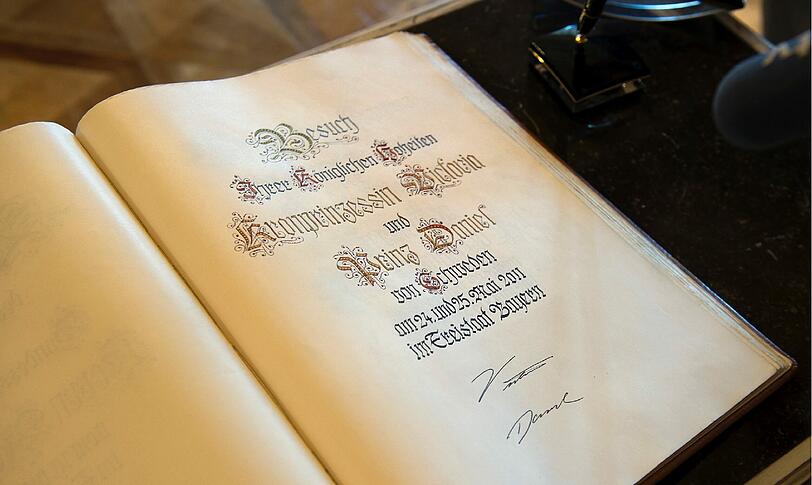 Besuch
Ihrer Königlichen Hoheiten
Kronprinzessin Victoria
und
Prinz Daniel
von Schweden
am 24. und 25. Mai 2011
im Freistaat Bayern
Daniel